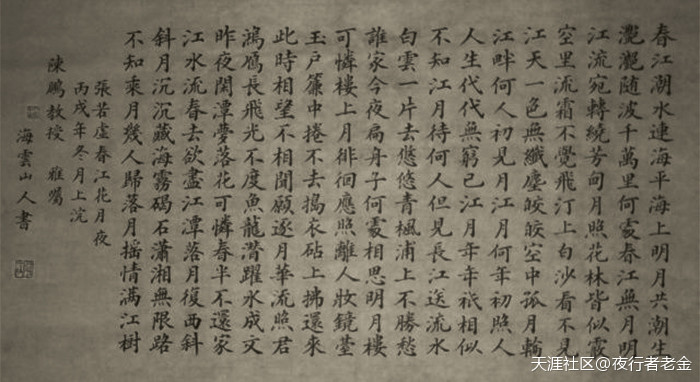 春江潮水連海平海上明月共潮生
灔灔随波千萬里何處春江無月明
江流宛轉繞芳甸月照花林皆似霰
空里流霜不覺飛汀上白沙看不見
江天一色無纖塵皎皎空中孤月輪
江畔何人初見月江月何年初照人
人生代代無窮已江月年年祇相似
不知江月待何人但見長江送流水
白雲一片去悠悠青楓浦上不勝愁
誰家今夜扁舟子何處相思明月樓
可憐樓上月徘徊應照離人妝鏡臺
玉戶簾中捲不去搗衣砧上拂還來
此時相望不相聞願逐月華流照君
鴻鴈長飛光不度魚龍潛躍水成文
昨夜閑潭夢落花可憐春半不還家
江水流春去欲盡江潭落月復西斜
斜月沉沉藏海霧碣石瀟湘無限路
不知乘月幾人歸落月摇情满江樹
張若虛春江花月夜
丙戌年冬月上浣
陳鵬教授 雅屬
海雲山人書
天涯社区@夜行者老金